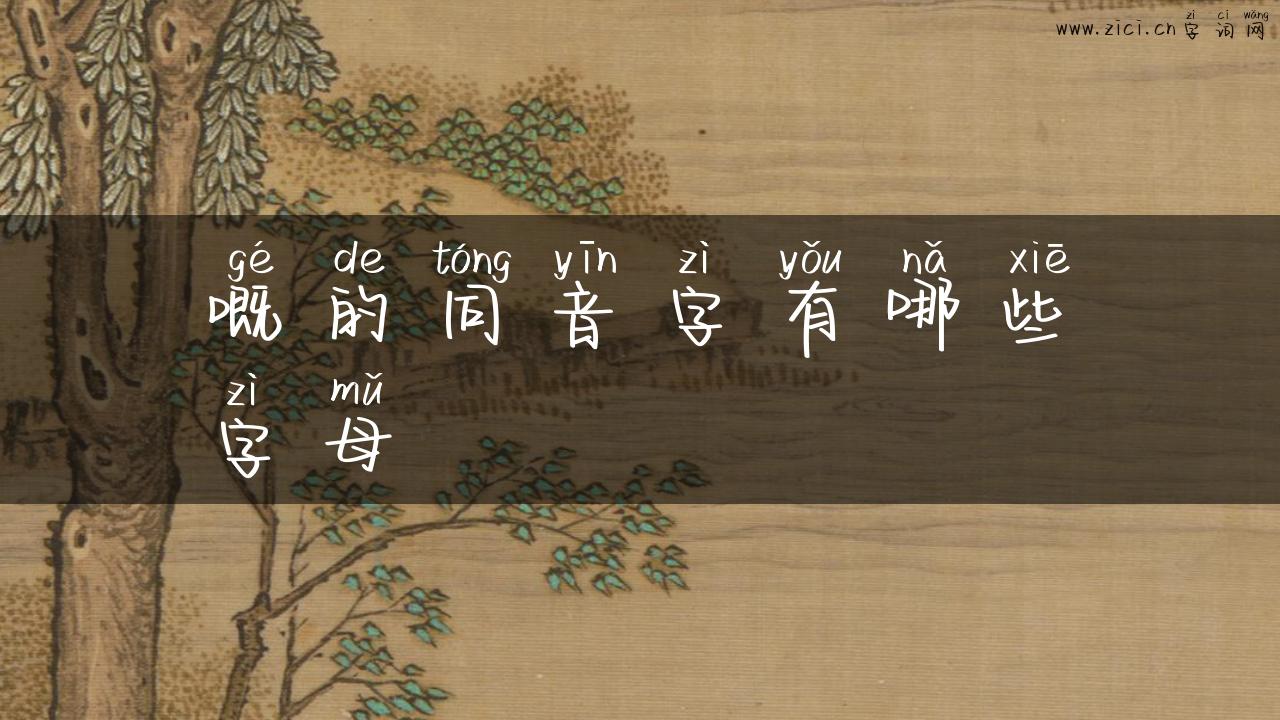 zì cí wǎng
www.zici.cn 字词网
gé de tóng yīn zì yǒu nǎ xiē
嘅的同音字有哪些
zì mǔ
字母